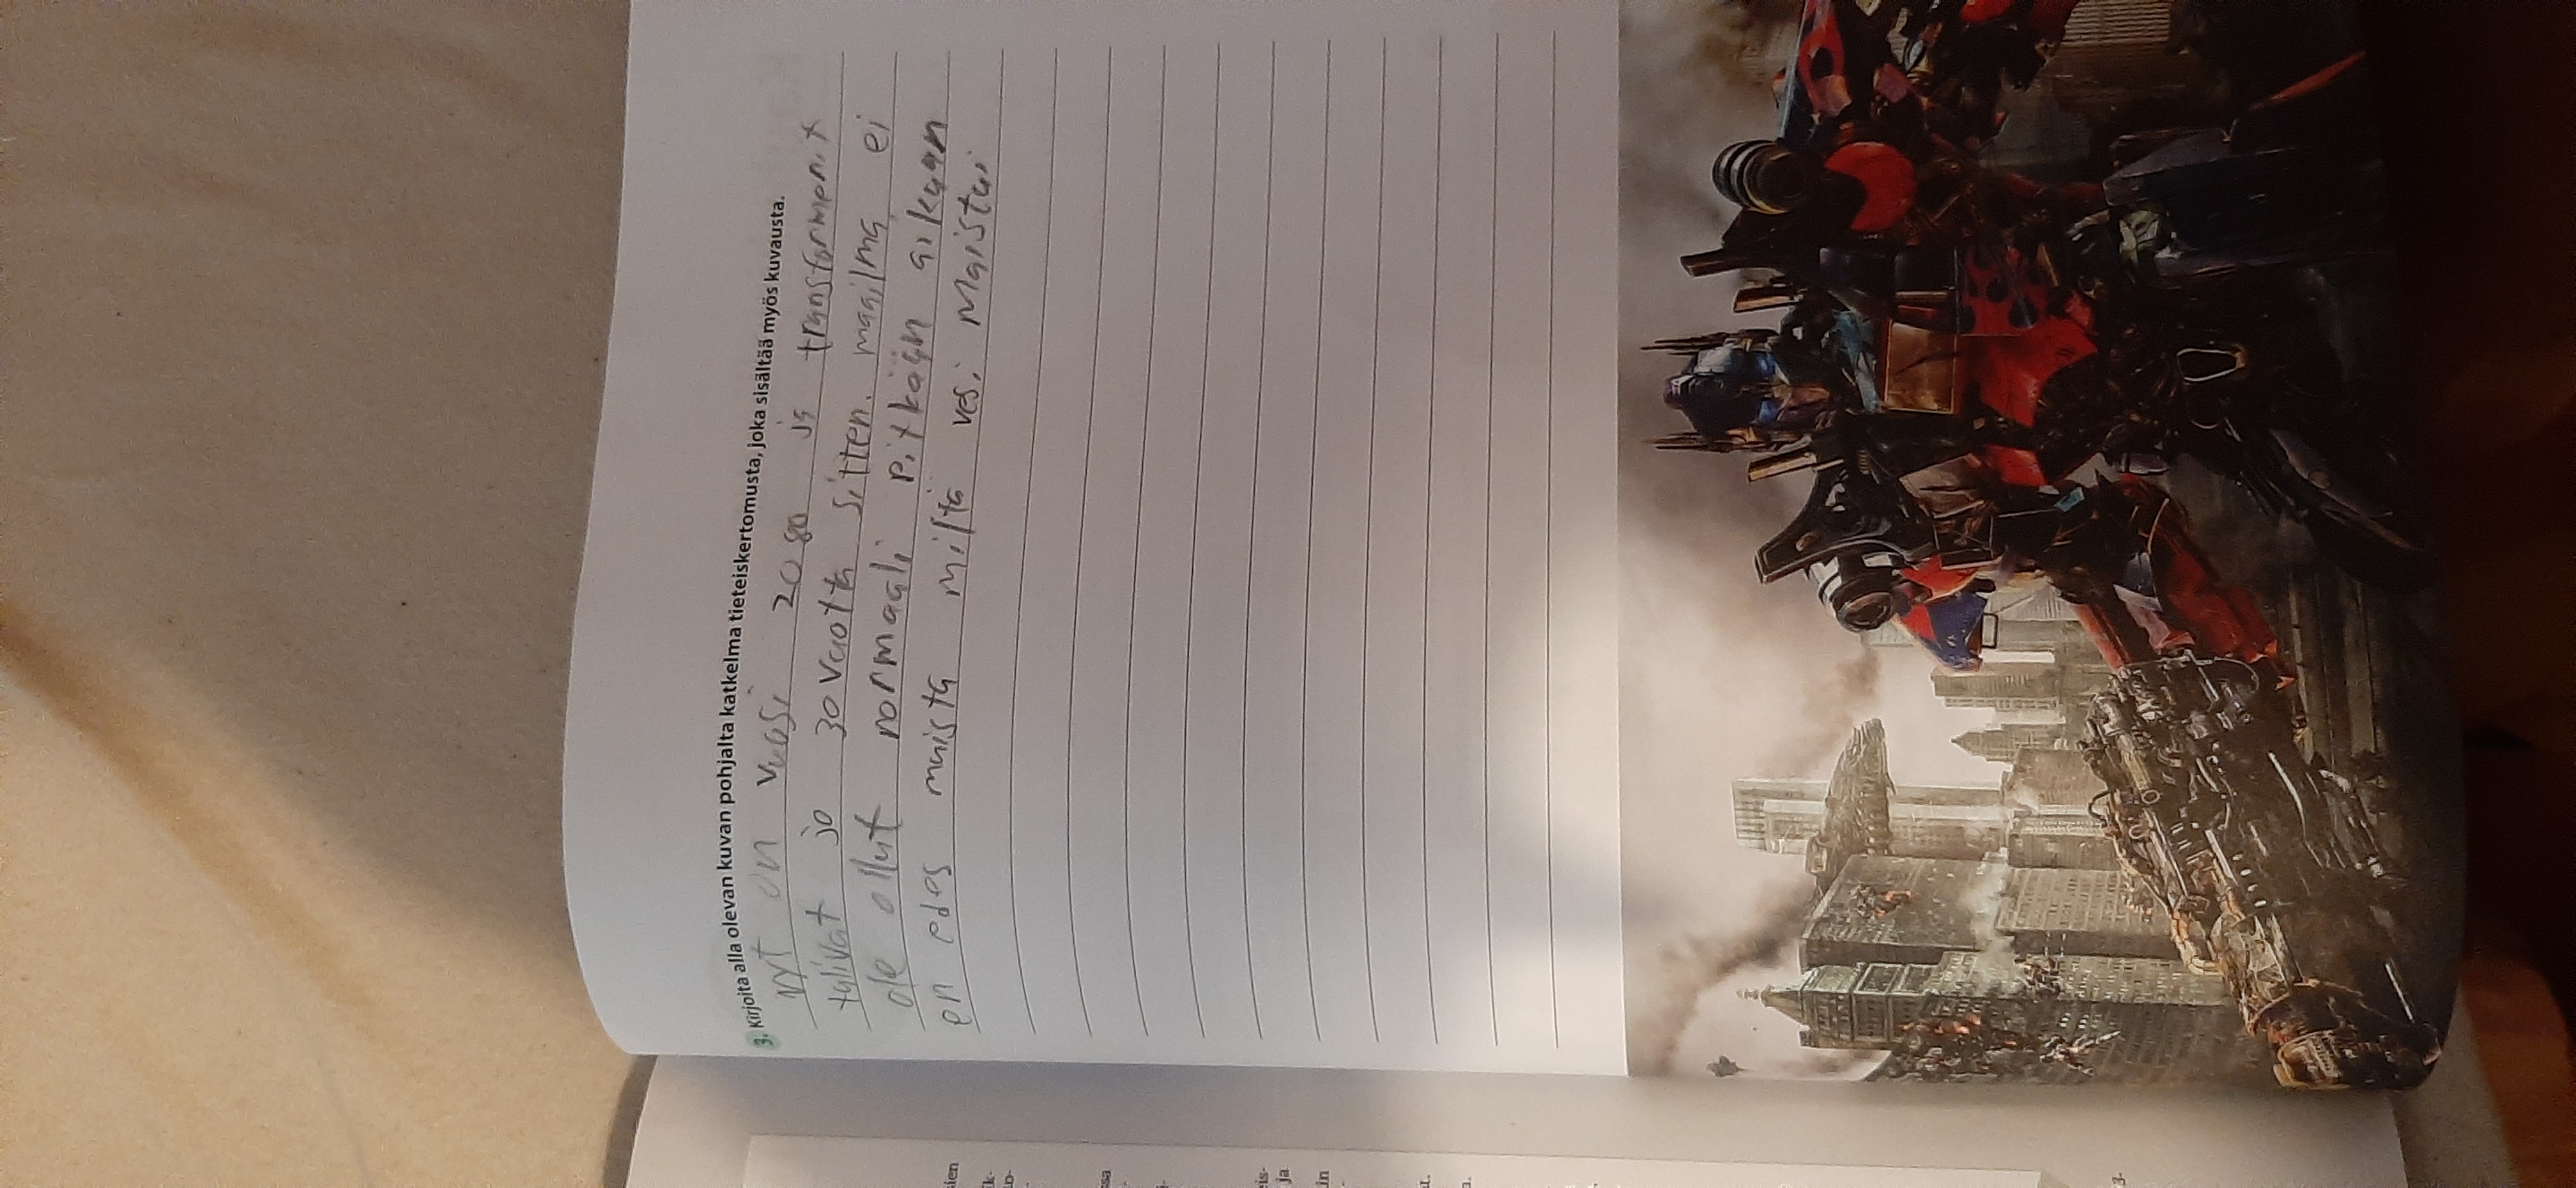 3. Kirjoita alla olevan kuvan pohjalta katkelma tieteiskertomusta, joka sisältää myös kuvausta.
nyt on vuosi 2080 ja transformerit
tulivat jo 30 vuotta sitten. maailma ei
ole ollut normaali pitkään aikaan
en edes muista miltä vesi maistui